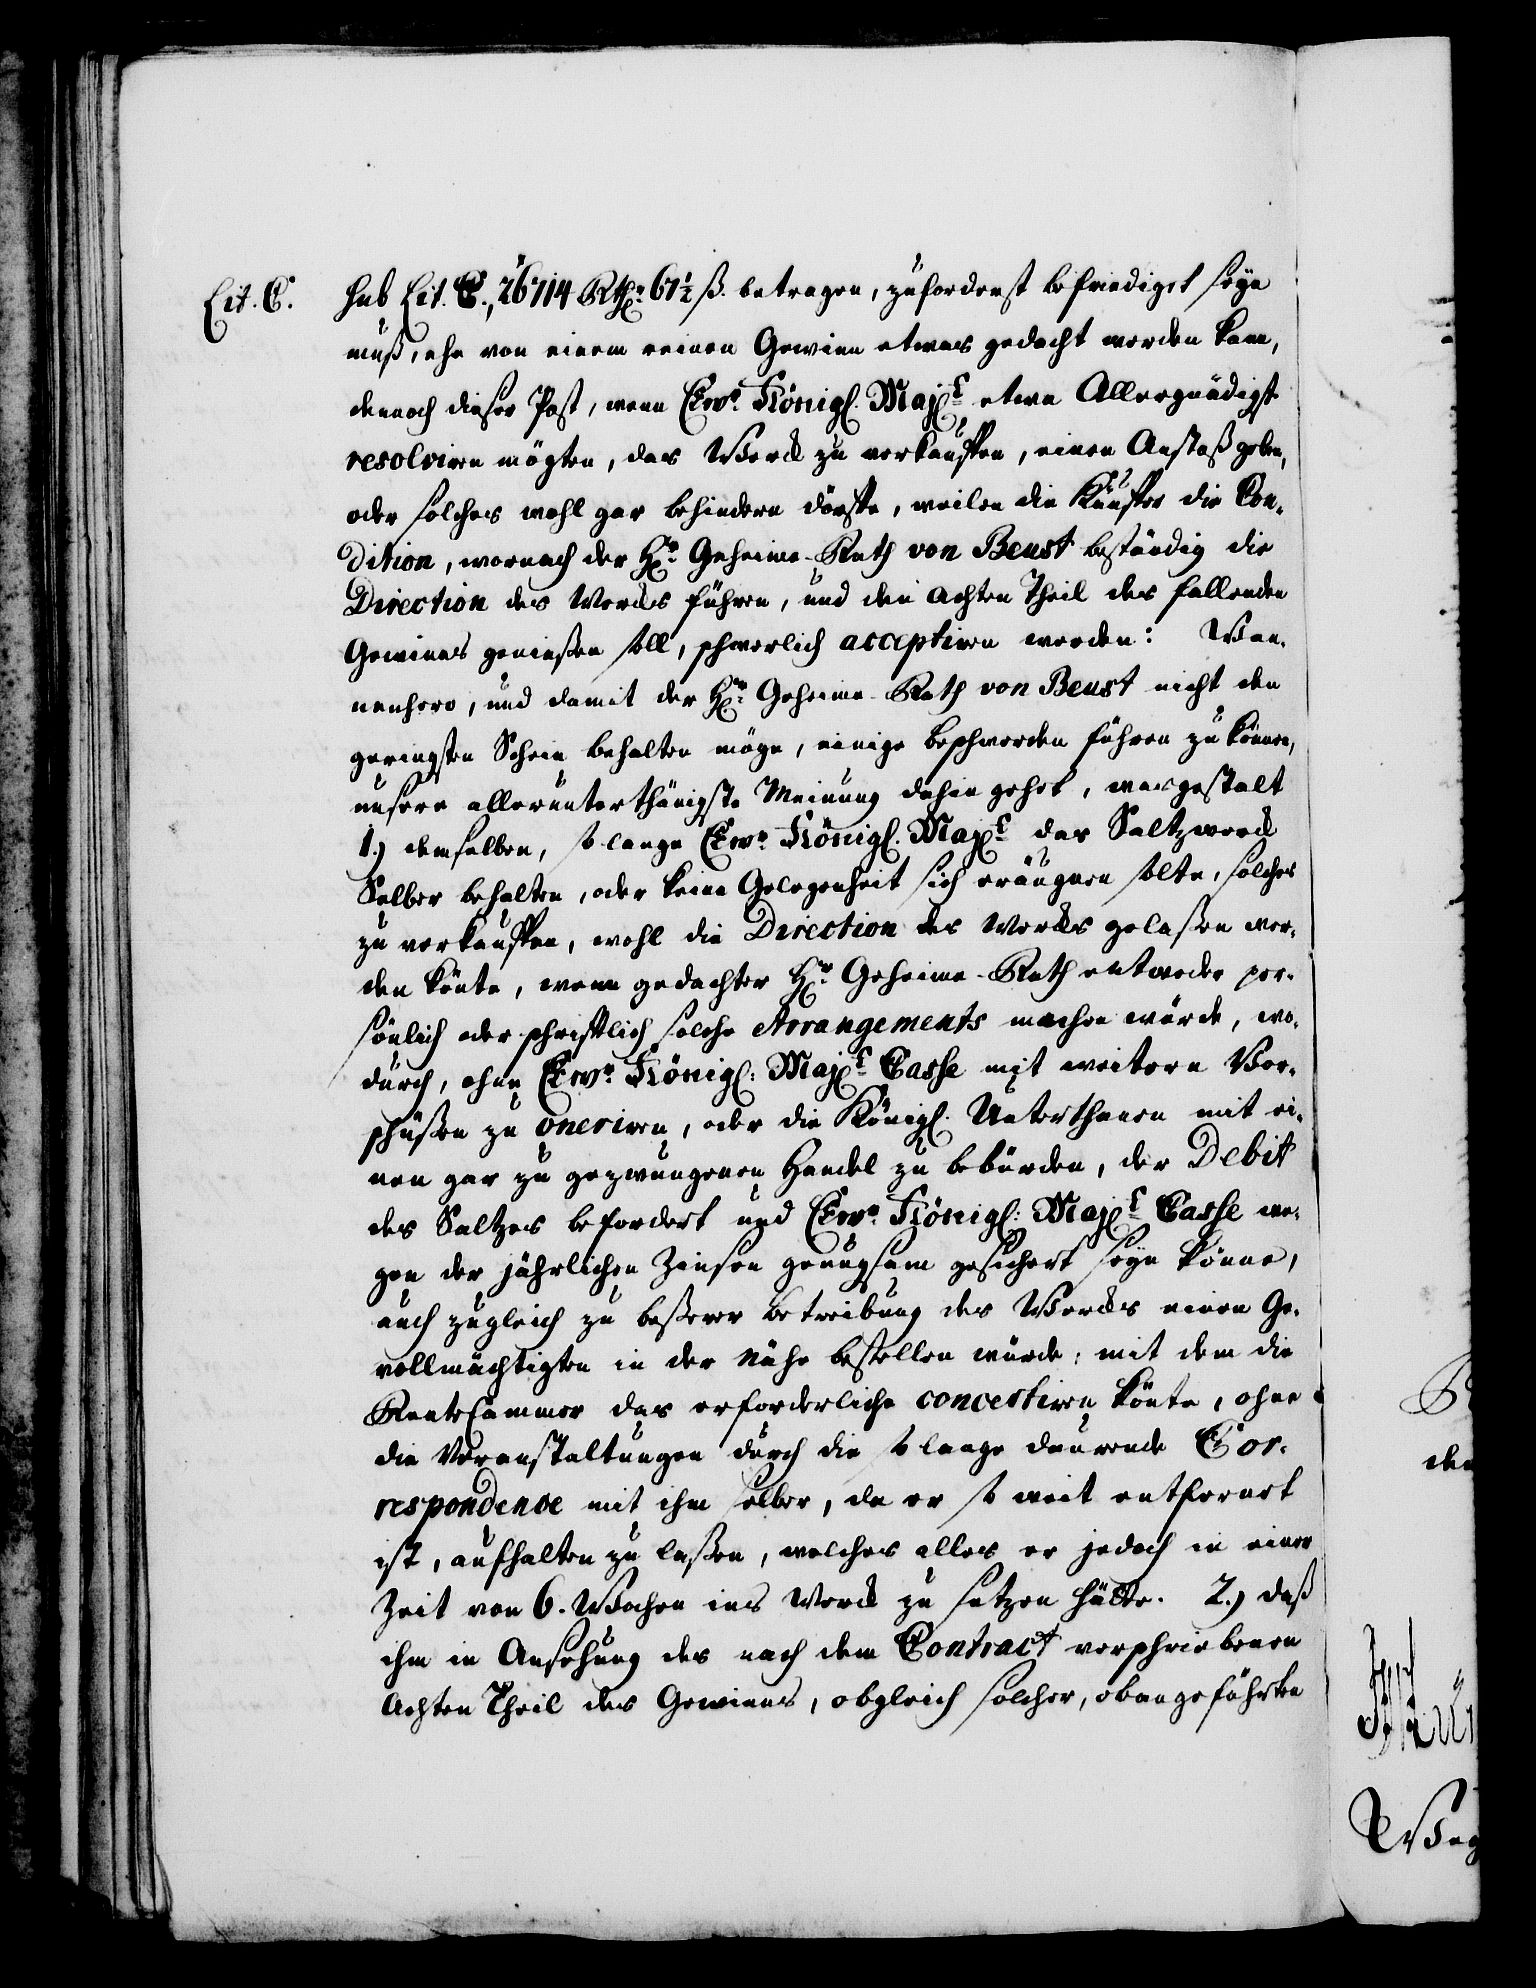 Lit. C.
sub Lit. C., 26714 Rthr. 67½ ß. betragen, zuforderst befriediget seyn
muß, ehe von einem reinen Gewinn etwas gedacht werden kann,
dennoch dieser Post, wenn Ewr. Königl. Majt. etwa Allergnädigst
resolviren mögten, das Werck zu verkauffen, einen Anstoß geben,
oder solches wohl gar behindern dörffte, weilen die Käuffer die Con-
dition, wornach der Hr. Geheime-Rath von Beust beständig die
Direction des Wercks führen, und den achten Theil des fallenden
Gewinns genießen soll, schwerlich acceptiren werden: Wan-
nenhero, und damit der Hr. Geheime-Rath von Beust nicht den
geringsten Schein behalten möge, einige beschwerden führen zu können,
unsere allerunterthänigste Meinung dahin gehet, wasgestalt
1.) demselben, so lange Ewr. Königl. Majt. das Saltzwerck
Selber behalten, oder keine Gelegenheit sich eräugnen solte, solches
zu verkauffen, wohl die Direction des Wercks gelaßen wer-
den könte, wenn gedachter Hr. Geheime-Rath entweder per-
sönlich oder schrifftlich solche Arrangements machen würde, wo-
durch, ohne Ewr. Königl: Majt. Casse mit weitern Vor-
schüßen zu oneriren, oder die Königl. Unterthanen mit ei-
nen gar zu gezwungenen Handel zu bebürden, der Debit
des Saltzes befordert und Ewr. Königl: Majt. Casse we-
gen der jährlichen Zinsen genugsam gesichert seyn könne,
auch zugleich zu beßerer Betreibung des Wercks einen Ge-
vollmächtigten in der Nähe bestellen würde, mit dem die
RenteCammer das erforderliche concertiren könte, ohne
die Veranstaltungen durch die so lange daurende Cor-
respondence mit ihm selber, da er so weit entfernet
ist, aufhalten zu laßen, welches alles er jedoch in einer
Zeit von 6. Wochen ins Werck zu setzen hätte. 2.) daß
ihm in Ansehung des nach dem Contract verschriebenen
Achten Theil des Gewinns, obgleich solcher, obangeführten